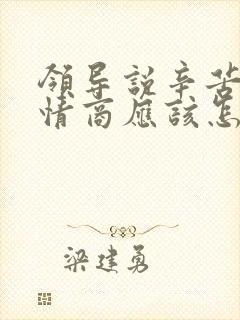 领导說辛苦
情商應該怎
梁建勇